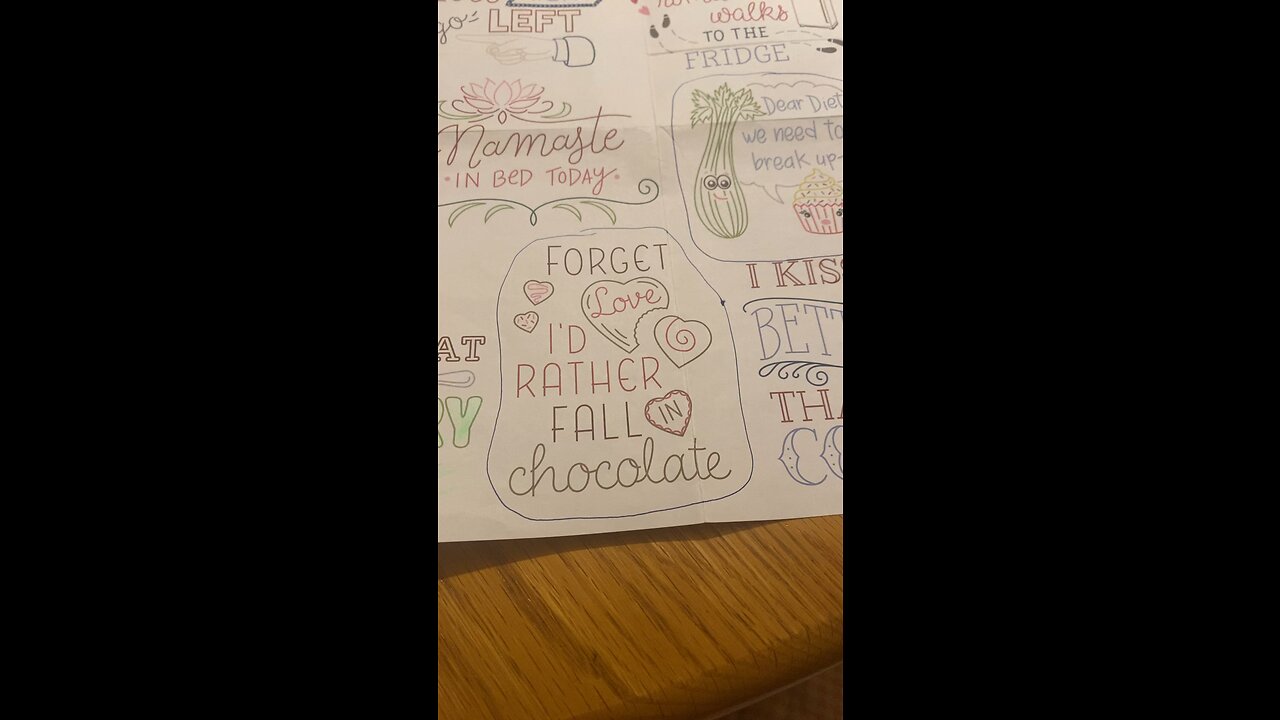 go
LEFT
walks
TO THE
FRIDGE
Namaste
IN BED TODAY
Dear Diet
we need to
break up-
FORGET
Love
I'D
RATHER
FALL IN
chocolate
I KISS
BETT
THA
CO
AT
RY